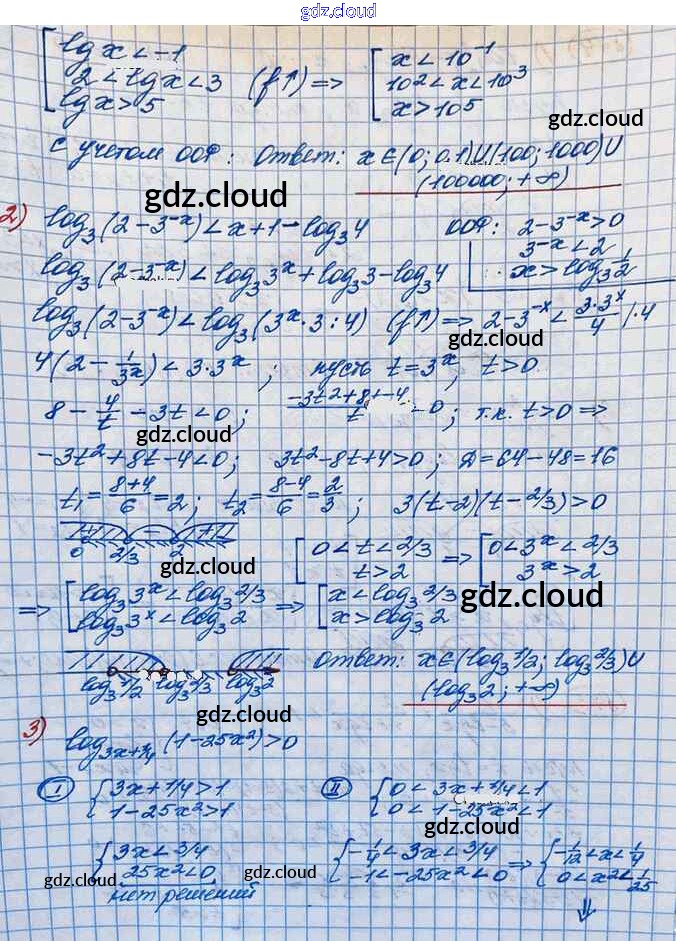 gdz.cloud
lg x < -1
2 < lg x < 3 (f↑) =>
lg x > 5
x < 10⁻¹
10² < x < 10³
x > 10⁵
gdz.cloud
с учетом ООФ: Ответ: x∈(0; 0.1)∪(100; 1000)∪
(100000; +∞)
gdz.cloud
2) log₃(2-3⁻ˣ) < x+1-log₃4 ООФ: 2-3⁻ˣ>0
3⁻ˣ<2
x>log₃ 1/2
log₃(2-3⁻ˣ) < log₃3ˣ + log₃3 - log₃4
log₃(2-3⁻ˣ) < log₃(3ˣ·3:4) (f↑) => 2-3⁻ˣ < 3·3ˣ/4 |·4
gdz.cloud
4(2 - 1/3ˣ) < 3·3ˣ; пусть t=3ˣ, t>0
8 - 4/t - 3t < 0; -3t²+8t-4/t < 0; т.к. t>0 =>
gdz.cloud
-3t²+8t-4<0; 3t²-8t+4>0; Д=64-48=16
t₁ = 8+4/6 = 2; t₂ = 8-4/6 = 2/3; 3(t-2)(t-2/3)>0
0 2/3 2
gdz.cloud
0<t<2/3
t>2
=>
0<3ˣ<2/3
3ˣ>2
gdz.cloud
=>
log₃3ˣ<log₃2/3
log₃3ˣ<log₃2
=>
x<log₃2/3
x>log₃2
log₃1/2 log₃2/3 log₃2
Ответ: x∈(log₃1/2; log₃2/3)∪
(log₃2; +∞)
gdz.cloud
3) log₃ₓ₊₁/₄(1-25x²)>0
I
3x+1/4>1
1-25x²>1
II
0<3x+1/4<1
0<1-25x²<1
gdz.cloud
3x<3/4
25x²<0
нет решений
gdz.cloud
gdz.cloud
-1/4<3x<3/4
-1<-25x²<0
=>
-1/12<x<1/4
0<x²<1/25
⇓
gdz.cloud